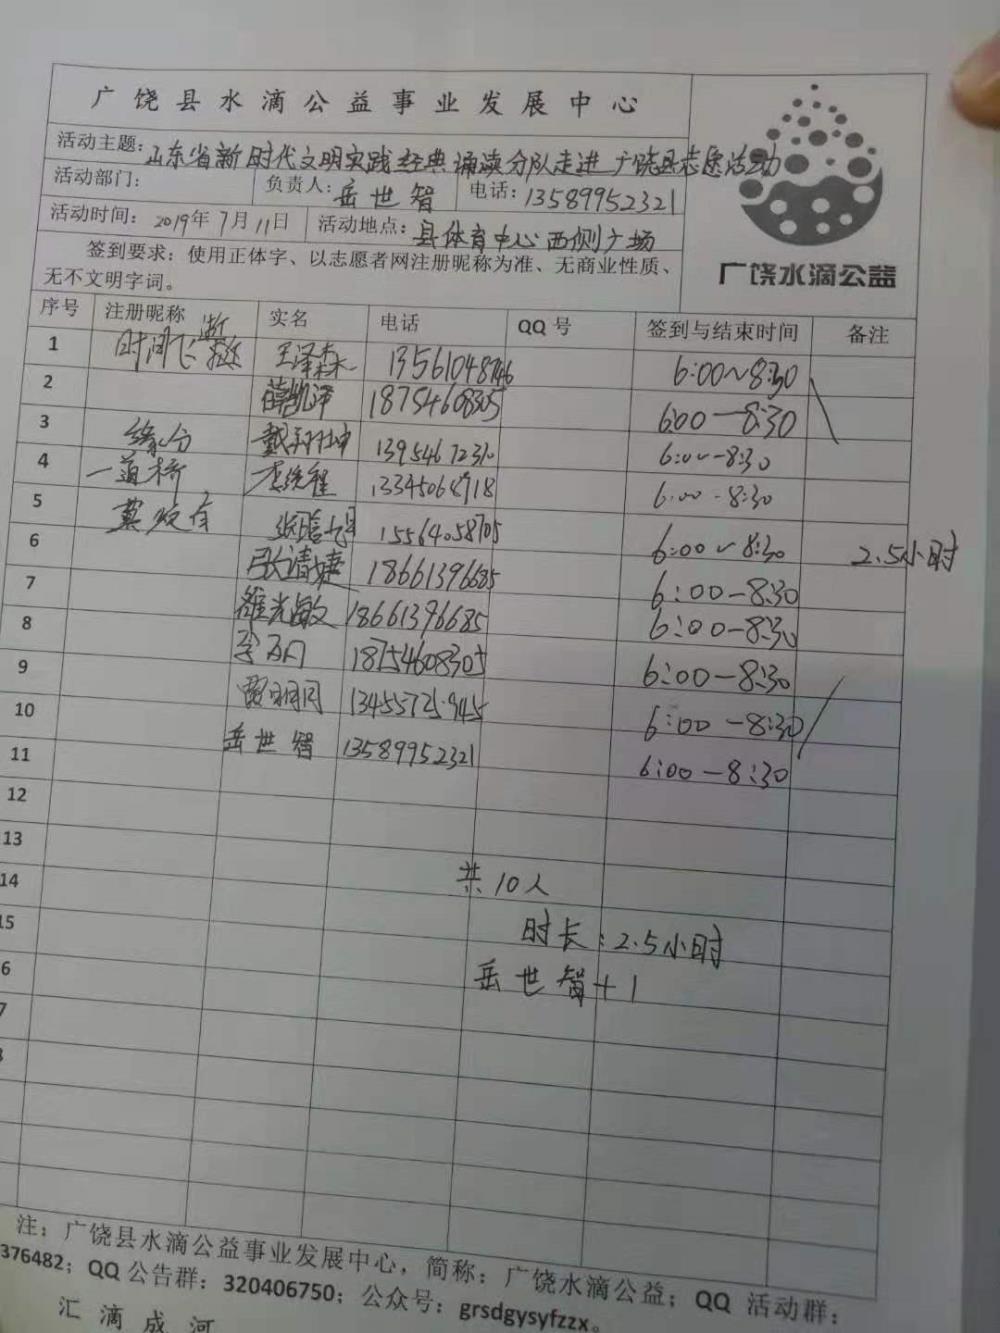 广饶县水滴公益事业发展中心
活动主题：山东省新时代文明实践经典诵读分队走进广饶县志愿活动
活动部门： 负责人：岳世智 电话：13589952321
活动时间：2019年7月11日 活动地点：县体育中心西侧广场
签到要求：使用正体字、以志愿者网注册昵称为准、无商业性质、
无不文明字词。
广饶水滴公益
序号 注册昵称 实名 电话 QQ号 签到与结束时间 备注
1 时间飞逝 王泽森 13561048746 6:00～8:30
2 薛凯泽 18754608305 6:00—8:30
3 缘分 13954672310 6:00—8:30
4 一道桥 李统程 6:00-8:30
5 15564058705 6:00～8:30 2.5小时
6 张清婕 18661396685 6:00—8:30
7 雒光敏 18661396685 6:00—8:30
8 18754608305 6:00—8:30
9 贾明同 13455725945 6:00—8:30
10 岳世智 13589952321 6:00—8:30
11
12
13
14 共10人
15 时长：2.5小时
6 岳世智+1
7
8
注：广饶县水滴公益事业发展中心，简称：广饶水滴公益；QQ 活动群：
376482；QQ公告群：320406750；公众号：grsdgysyfzzx。
汇滴成河